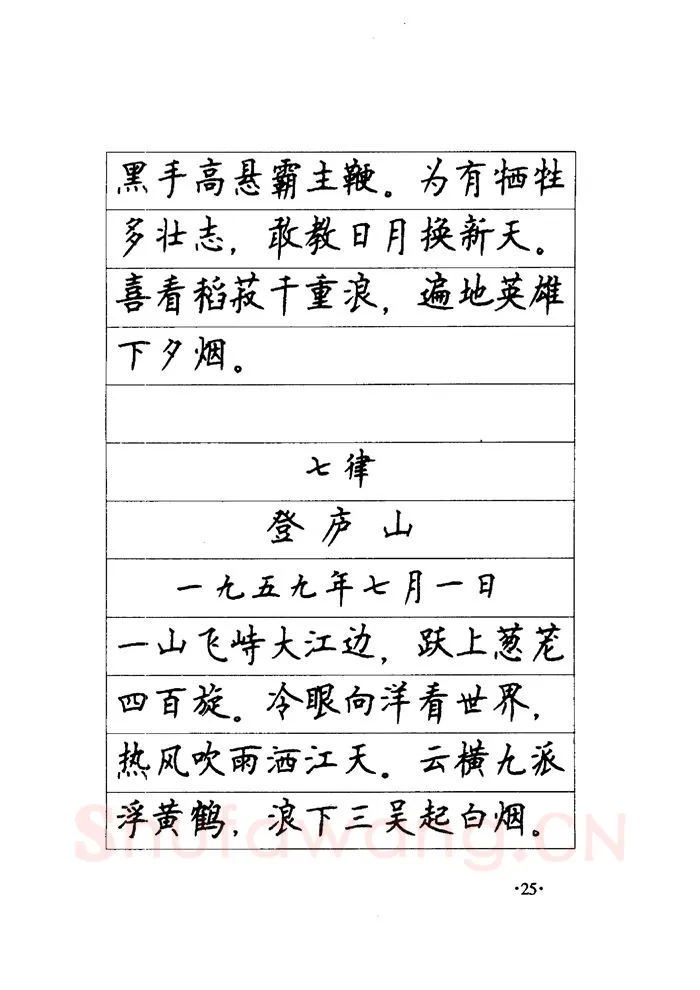 黑手高悬霸主鞭。为有牺牲
多壮志，敢教日月换新天。
喜看稻菽千重浪，遍地英雄
下夕烟。
七律
登庐山
一九五九年七月一日
一山飞峙大江边，跃上葱茏
四百旋。冷眼向洋看世界，
热风吹雨洒江天。云横九派
浮黄鹤，浪下三吴起白烟。
Shufawang.CN
·25·